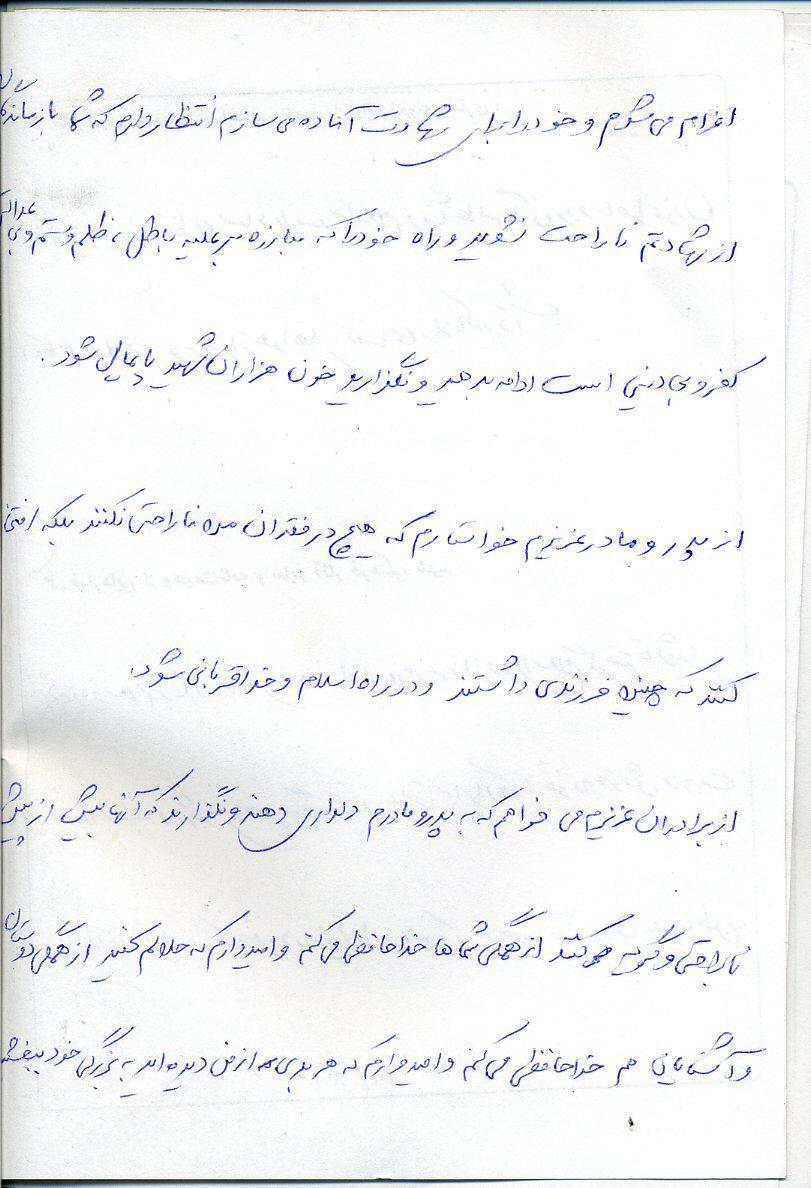 اعزام می شوم و خود را برای شهادت آماده می سازم انتظار دارم که شما بازماندگان
از شهادتم ناراحت نشوید و راه خود را که مبارزه بر علیه باطل ، ظلم و ستم و بی عدالتی
کفر و بی دینی است ادامه بدهید و نگذارید خون هزاران شهید پایمال شود .
از پدر و مادر عزیزم خواستارم که هیچ در فقدان من ناراحتی نکنند بلکه افتخار
کنند که چنین فرزندی داشتند و در راه اسلام و خدا قربانی شود .
از برادران عزیزم می خواهم که به پدر و مادرم دلداری دهند و نگذارند که آنها بیش از پیش
ناراحتی و گریه کنند از همگی شماها خداحافظی می کنم و امیدوارم که حلالم کنید از همگی دوستان
و آشنایان هم خداحافظی می کنم و امیدوارم که هر بدی از من دیده اید به بزرگی خود ببخشید